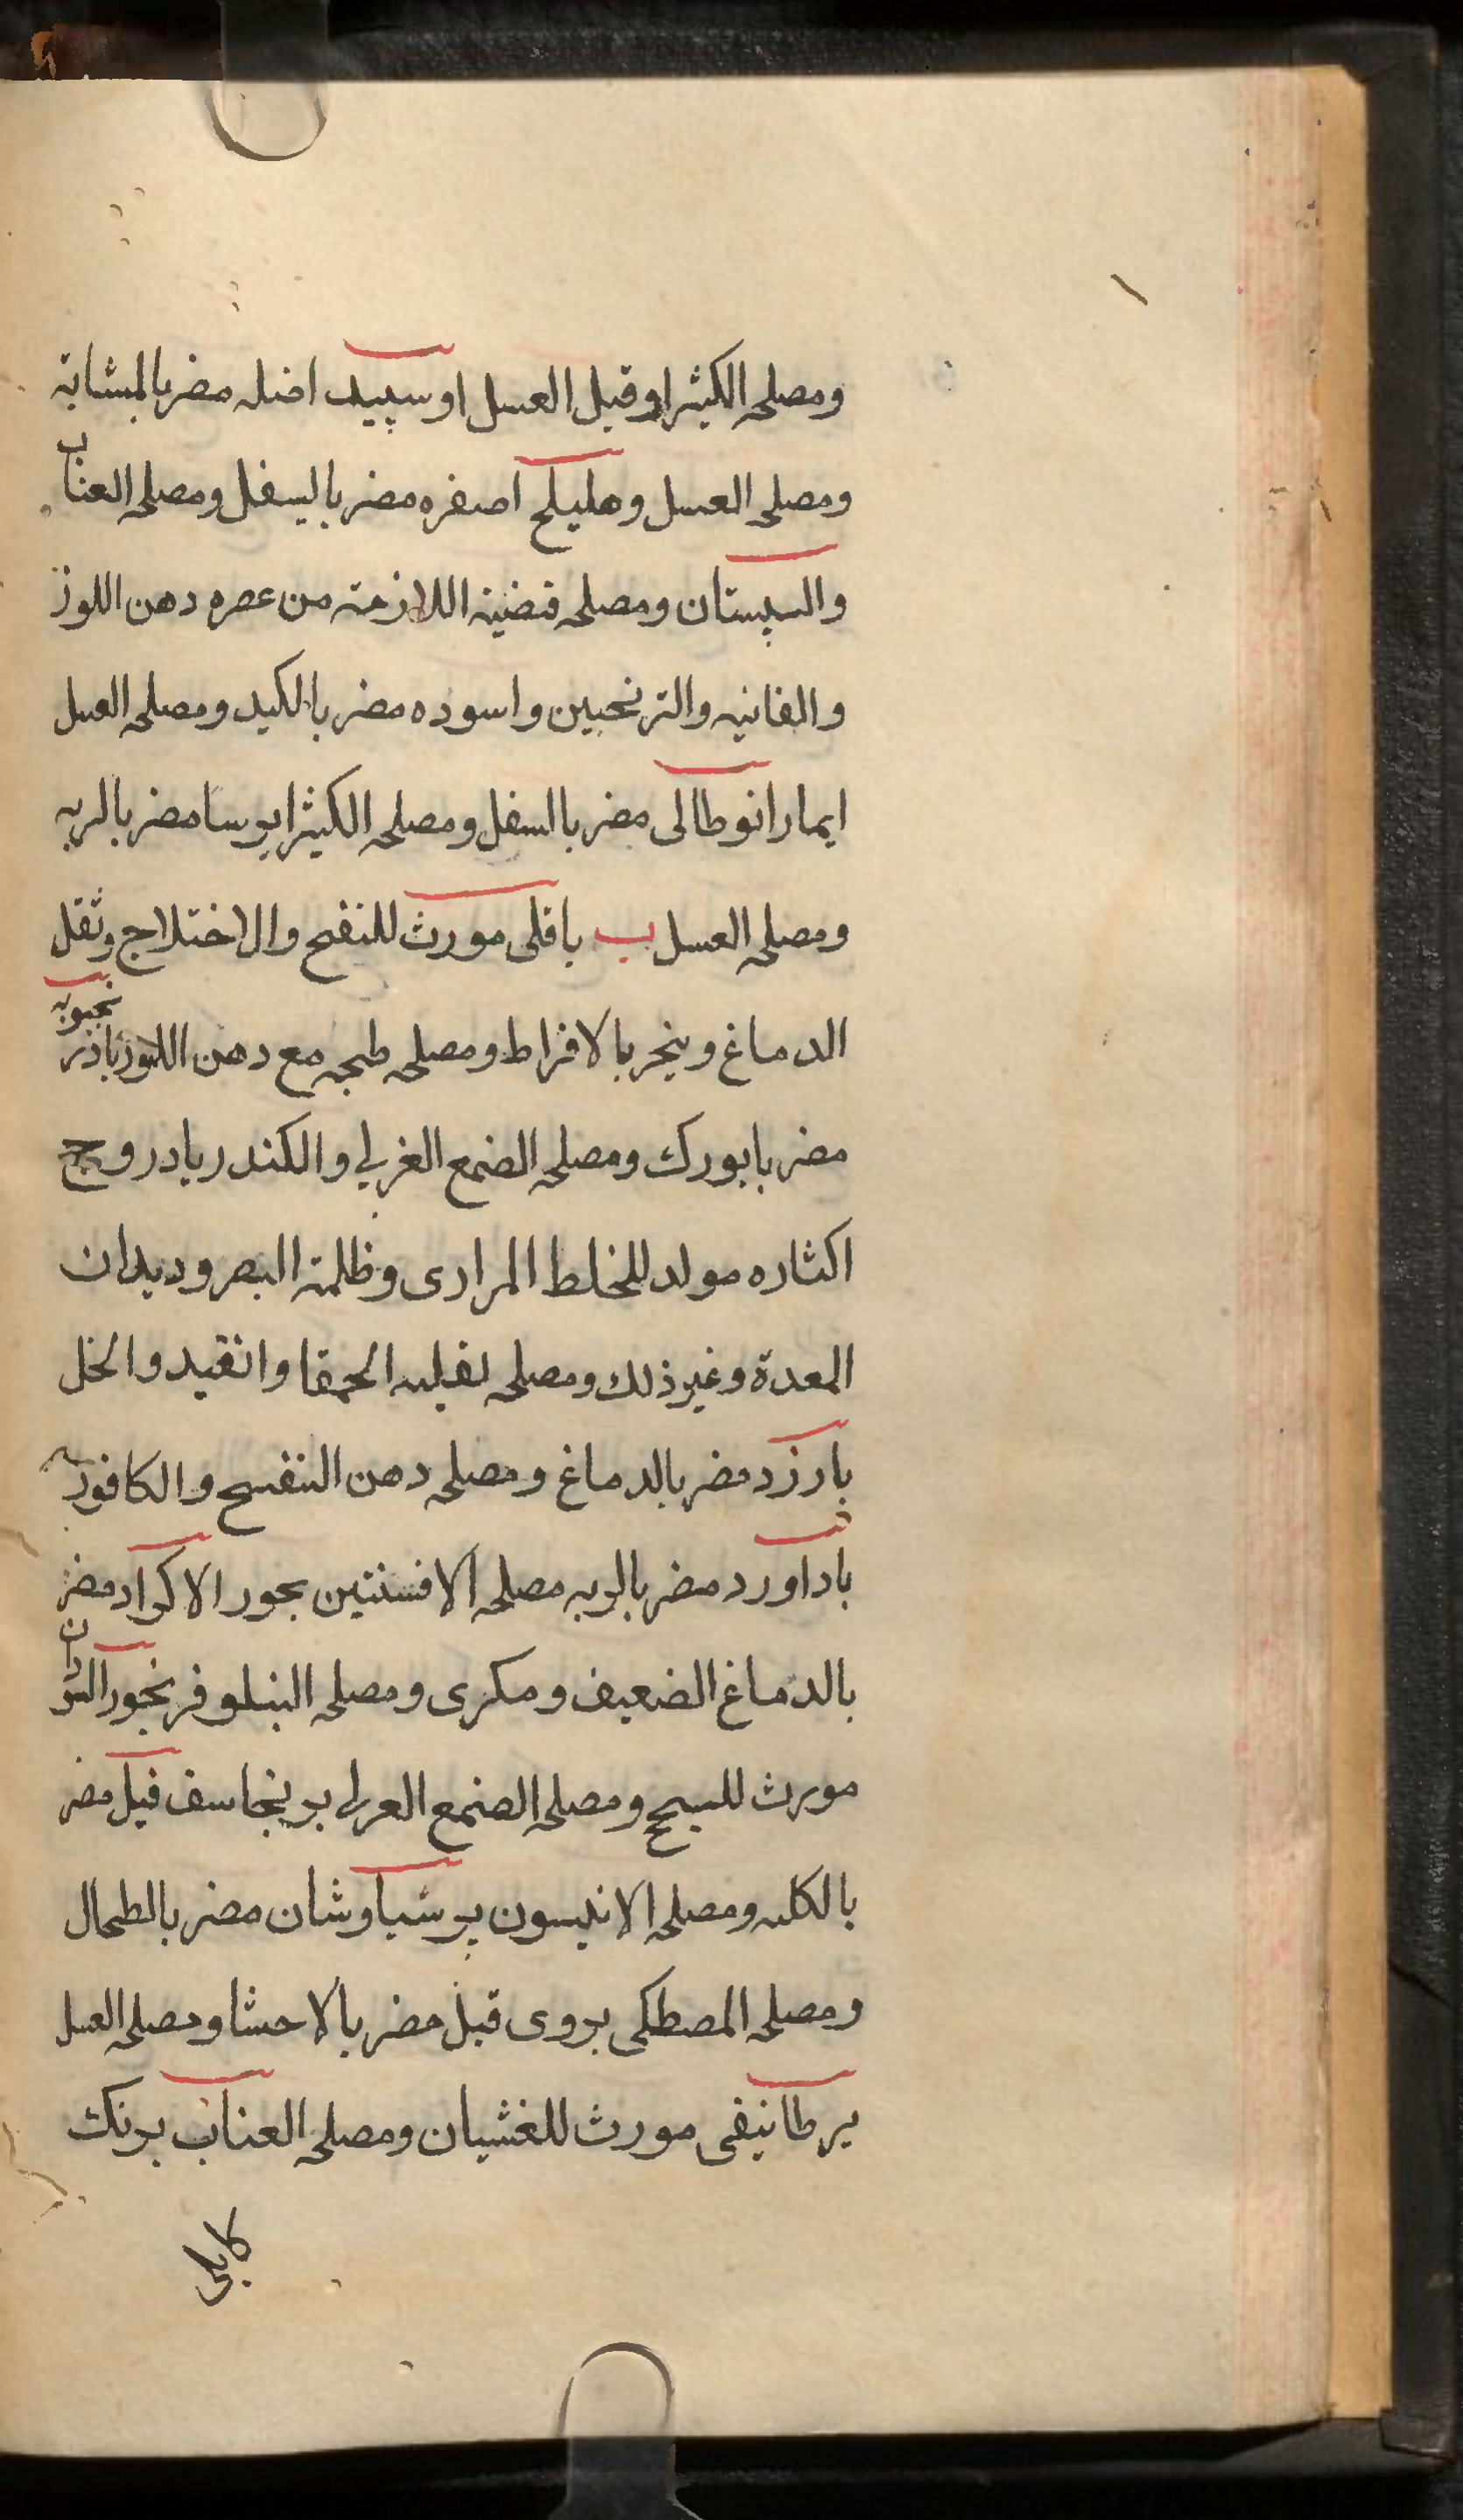 ومصلحه الكثيرا وقيل العسل اوسپيد اضله مضر بالمثانة
ومصلحه العسل وهليلج اصفره مضر باليسفل ومصلحه العناب
والسپستان ومصلحه اللازمة من عصره دهن اللوز
والفانيه والترنجبين واسوده مضر بالكبد ومصلحه العسل
ايمارانوطالى مضر بالسفل ومصلحه الكثيرا يرسا مضر بالريه
ومصلحه العسل ب باقلى مورث للنفخ والاختلاج وثقل
الدماغ وينجر بالافراط ومصلحه طبجه مع دهن اللوز باذرنجبويه
مضر بابورك ومصلحه الضمع الغربي والكندر بادروج
اكثاره مولد للخلط المرارى وظلمة البصر وديدان
المعدة وغير ذلك ومصلحه بقليه الحمقا وانقيد والخل
بارزد مضر بالدماغ ومصلحه دهن البنفسج والكافور
باداورد مضر بالريه مصلحه الافسنتين بجور الاكراد مضر
بالدماغ الضعيف ومكرى ومصلحه النيلوفر بخور السودان
مورث للسحج ومصلحه الصمع العربى برنجاسف قيل مضر
بالكليه ومصلحه الانيسون پرسياوشان مضر بالطحال
ومصلحه المصطكى بروى قيل مضر بالاحشا ومصلحه العسل
برطانيقى مورث للغشيان ومصلحه العناب برنك
كابلى